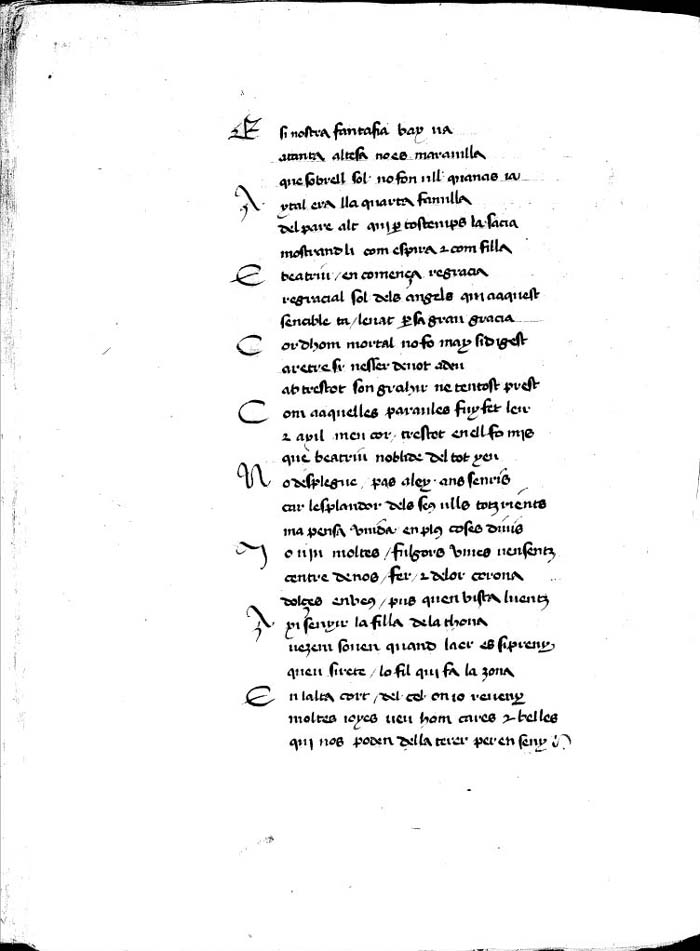 E si nostra fantasia bax ua
atanta altesa no es marauilla
que sobrell sol no fon ull quanas ia
A ytal era lla quarta familla
del pare alt qui ꝑ tostemps la sacia
mostrandli com espira ⁊ com filla
E beatriu / en comença regracia
regracia al sol dels angels qui aaquest
sencible ta / leuat ꝑ sa gran gracia
C or dhom mortal no fo may si digest
aretre si nesser deuot adeu
ab trestot son grahir ne tentost prest
C om aaquelles paraules fuy fet leu
⁊ axil meu cor / trestot en ell fo mis
que beatriu noblide del tot yeu
N o desplegue / pas aley ans senris
car lesplandor dels seꝯ ulls totz rients
ma pensa vnida en plꝯ coses diuis
I o viu moltes / fulgors viues uensentz
centre de nos / fer / ⁊ de lor corona
dolçes en veꝯ / pus quen vista luentz
A xi senyir la filla de la thona
uezem souen quand laer es si preny
quen si rete / lo fil qui fa la zona
E n lalta cort / del cel on io reueny
moltes ioyes ueu hom cares ⁊ belles
qui nos poden della terer per enseny